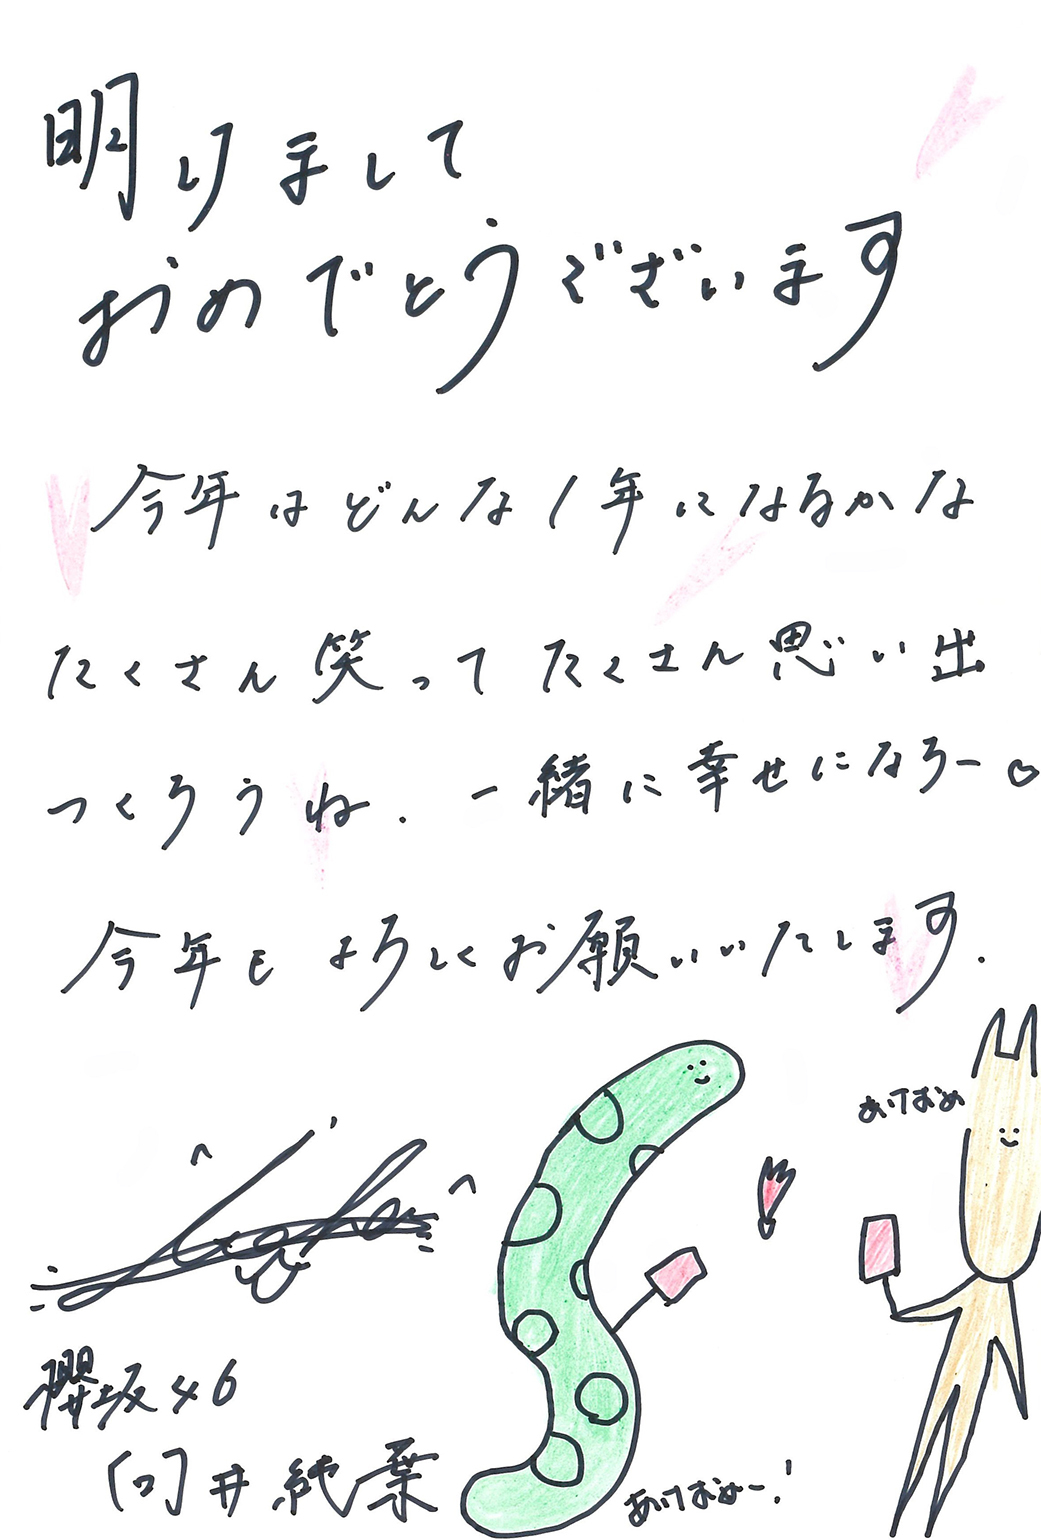 明けまして
おめでとうございます
今年はどんな1年になるかな
たくさん笑ってたくさん思い出
つくろうね. 一緒に幸せになろー♡
今年もよろしくお願いいたします.
あけおめ
櫻坂46
向井純葉
あけおめー!